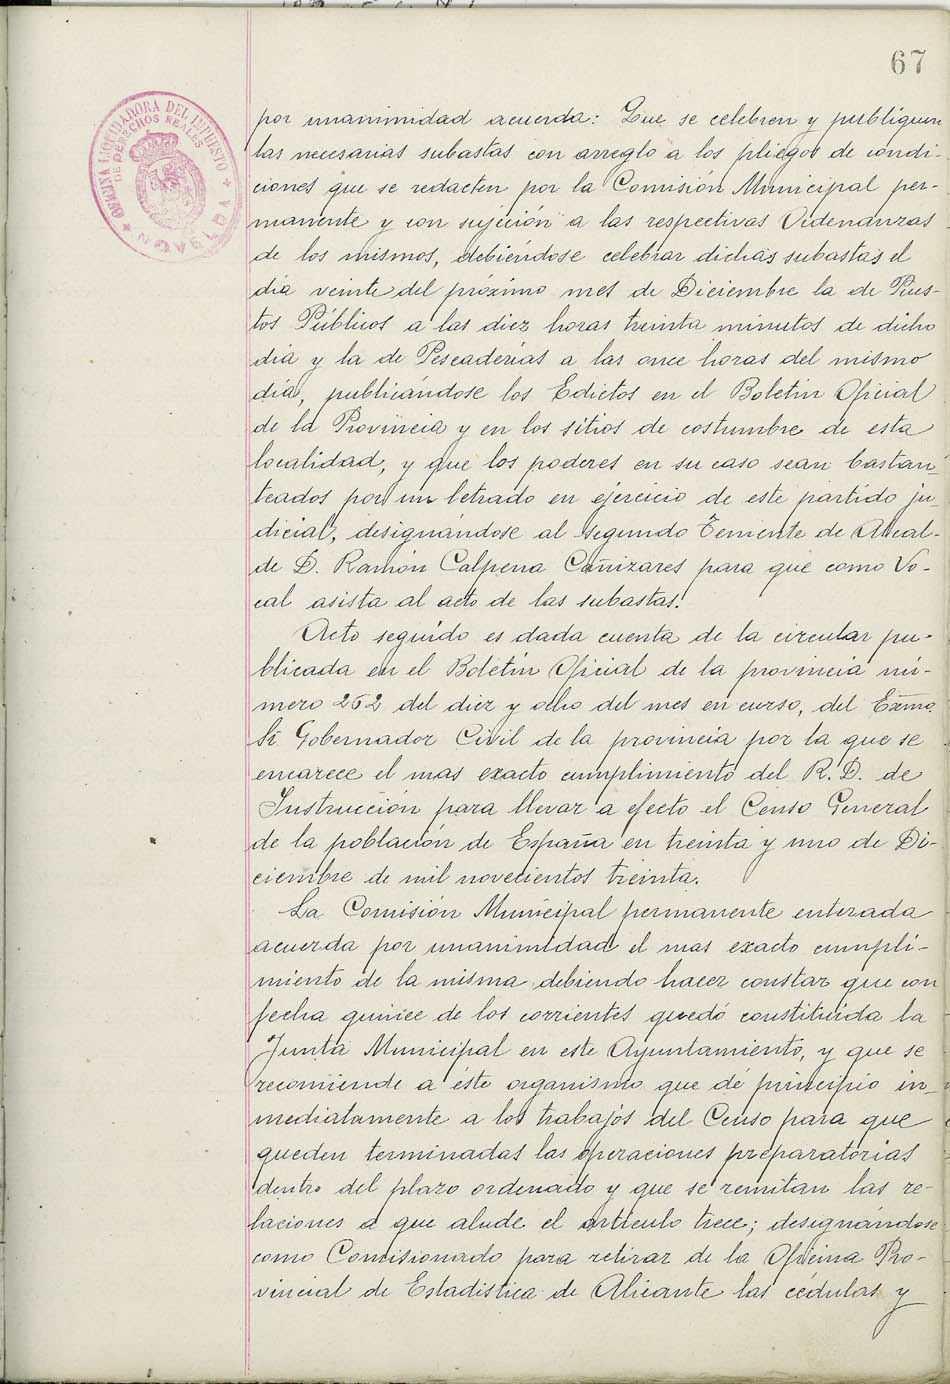 67
OFICINA LIQUIDADORA DEL IMPUESTO
DE DERECHOS REALES
por unanimidad acuerda: Que se celebren y publiquen
las necesarias subastas con arreglo a los pliegos de condi-
ciones que se redacten por la Comisión Municipal per-
manente y con sujeción a las respectivas Ordenanzas
de los mismos, debiéndose celebrar dichas subastas el
día veinte del próximo mes de Diciembre la de Pues-
tos Públicos a las diez horas treinta minutos de dicho
día y la de Pescaderías a las once horas del mismo
día, publicándose los Edictos en el Boletin Oficial
de la Provincia y en los sitios de costumbre de esta
localidad, y que los poderes en su caso sean bastan-
teados por un letrado en ejercicio de este partido ju-
dicial, designándose al segundo Teniente de Alcal-
de D. Ramón Calpena Cañizares para que como Vo-
cal asista al acto de las subastas.
Acto seguido es dada cuenta de la circular pu-
blicada en el Boletín Oficial de la provincia nú-
mero 262 del diez y ocho del mes en curso, del Exmo.
Sr. Gobernador Civil de la provincia por la que se
encarece el mas exacto cumplimiento del R. D. de
Instrucción para llevar a efecto el Censo General
de la población de España en treinta y uno de Di-
ciembre de mil novecientos treinta.
La Comisión Municipal permanente enterada
acuerda por unanimidad el mas exacto cumpli-
miento de la misma debiendo hacer constar que con
fecha quince de los corrientes quedó constituída la
Junta Municipal en este Ayuntamiento, y que se
recomiende a éste organismo que dé principio in-
mediatamente a los trabajos del Censo para que
queden terminadas las operaciones preparatorias
dentro del plazo ordenado y que se remitan las re-
laciones a que alude el artículo trece; designándose
como Comisionado para retirar de la Oficina Pro-
vincial de Estadística de Alicante las cédulas y